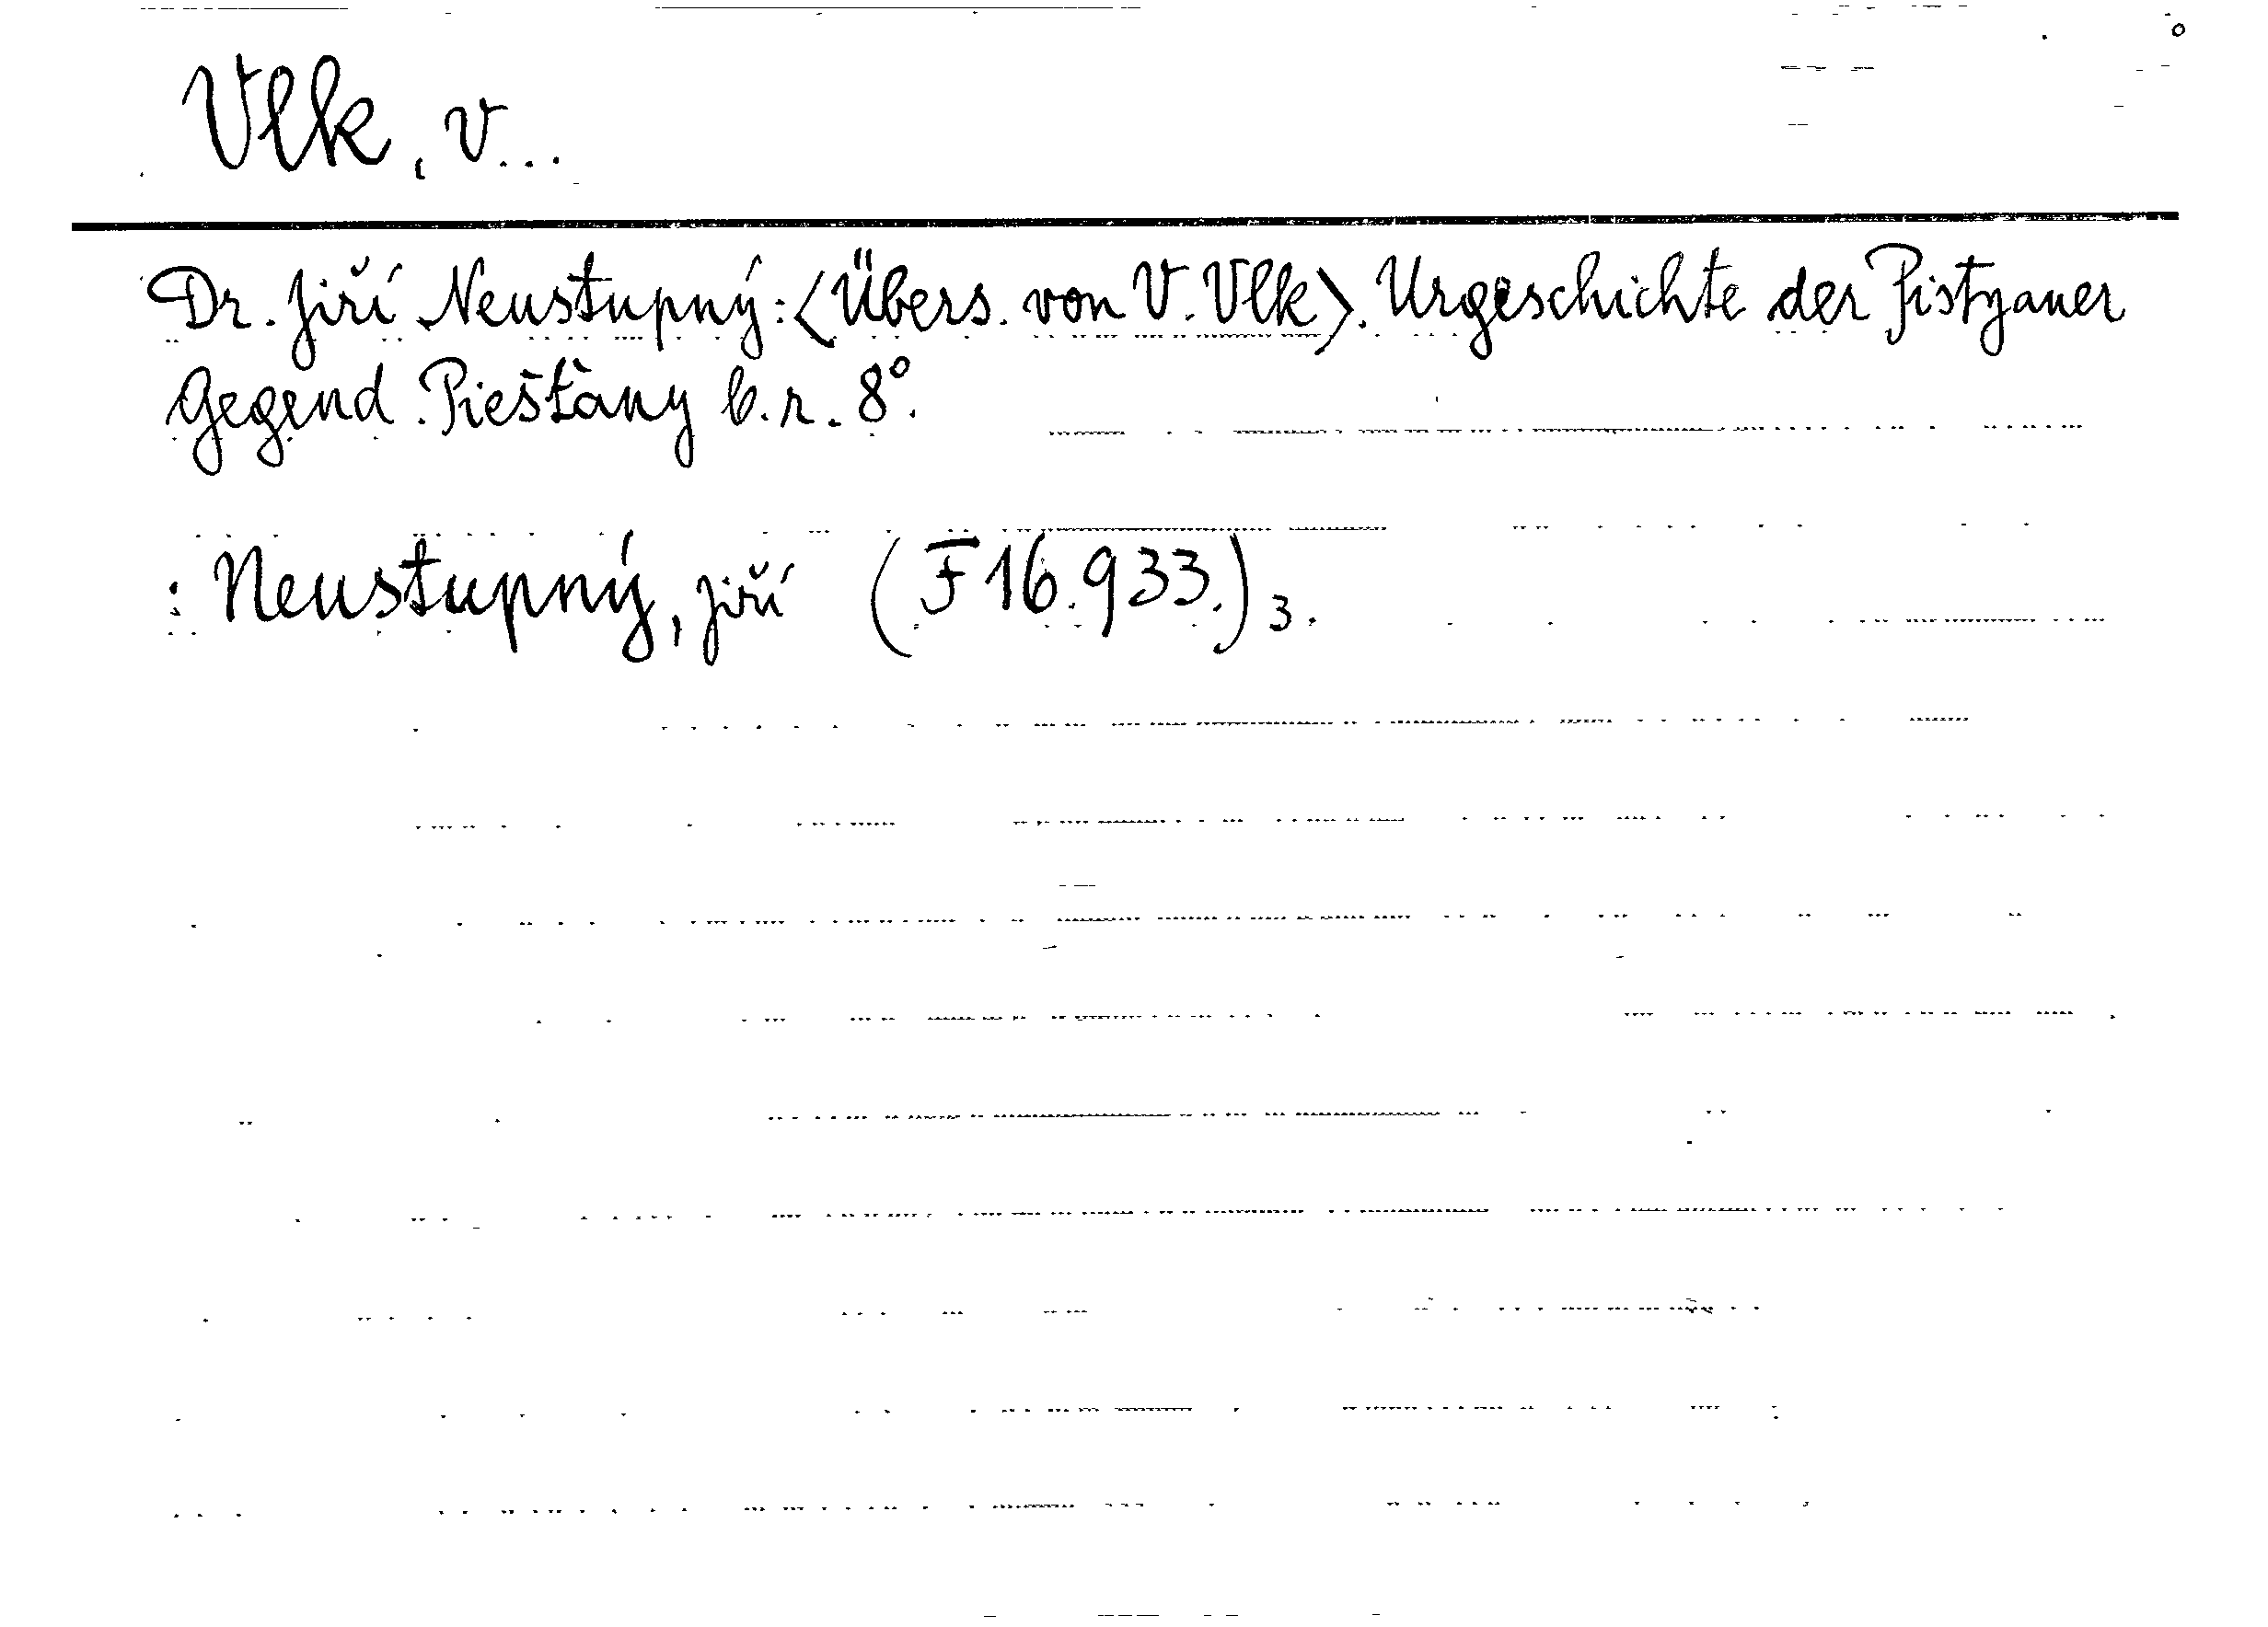 Vlk, V...
Dr. Jiří Neustupný: <Übers. von V. Vlk>. Urgeschichte der Pistyaner
Gegend. Piešťany b. r. 8°.
: Neustupný, Jiří (F 16.933.) 3.